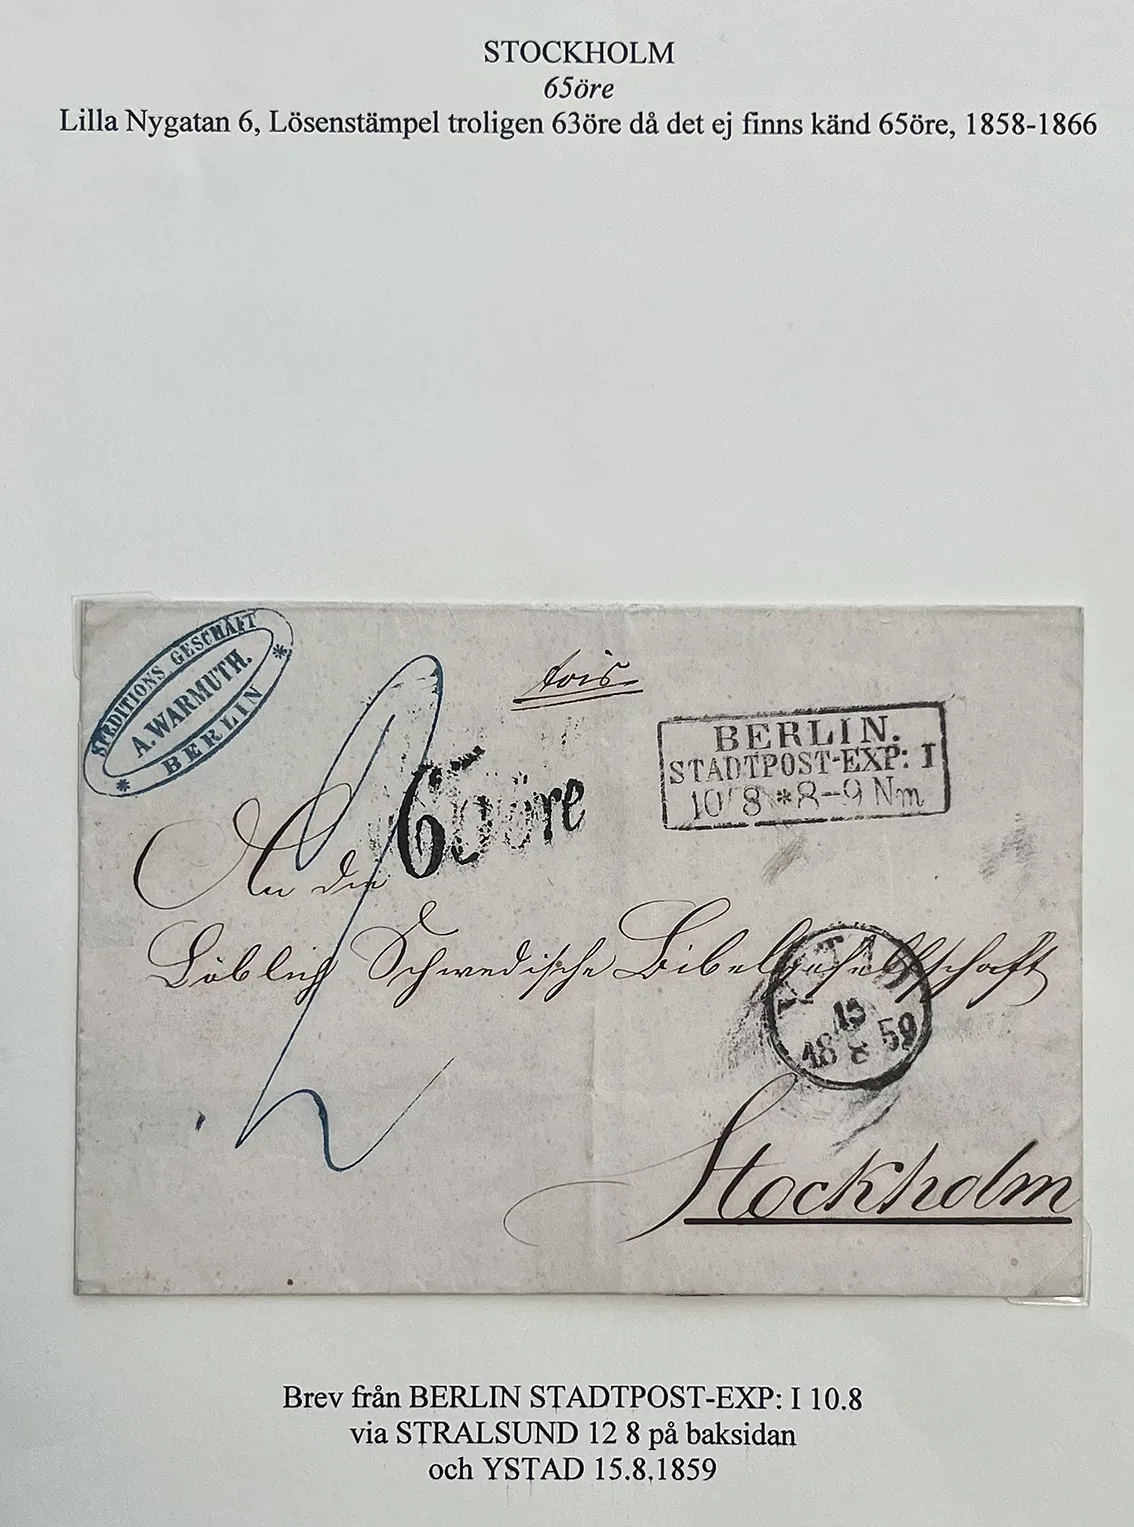 STOCKHOLM
65öre
Lilla Nygatan 6, Lösenstämpel troligen 63öre då det ej finns känd 65öre, 1858-1866
SPEDITIONS GESCHÄFT
A. WARMUTH.
* BERLIN *
BERLIN.
STADTPOST-EXP: I
10 8 * 8-9 Nm
öre
An die
Löblich Schwedische Bibelgesellschaft
YSTAD
15
18 8 59
Stockholm
Brev från BERLIN STADTPOST-EXP: I 10.8
via STRALSUND 12 8 på baksidan
och YSTAD 15.8.1859